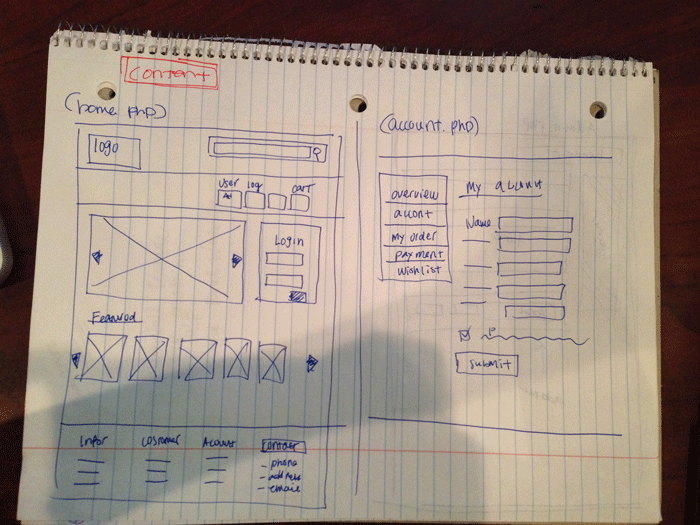 Content
(home.php)
logo
user log cart
Login
Featured
Infor Costomer Account Contact
- phone
- address
- email
(account.php)
overview
acont
my order
payment
wishlist
My account
Name
submit